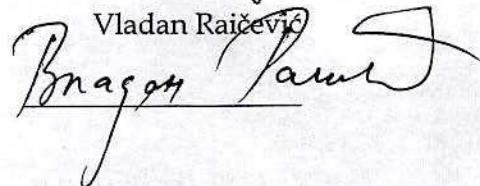 Vladan Raičević
Владан Раичевић